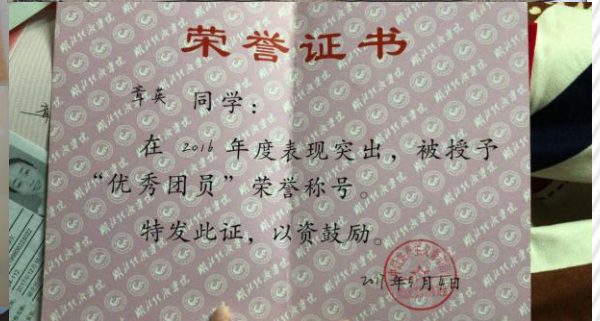 荣誉证书
章英 同学：
在 2016 年度表现突出，被授予
“优秀团员”荣誉称号。
特发此证，以资鼓励。
2017年5月4日